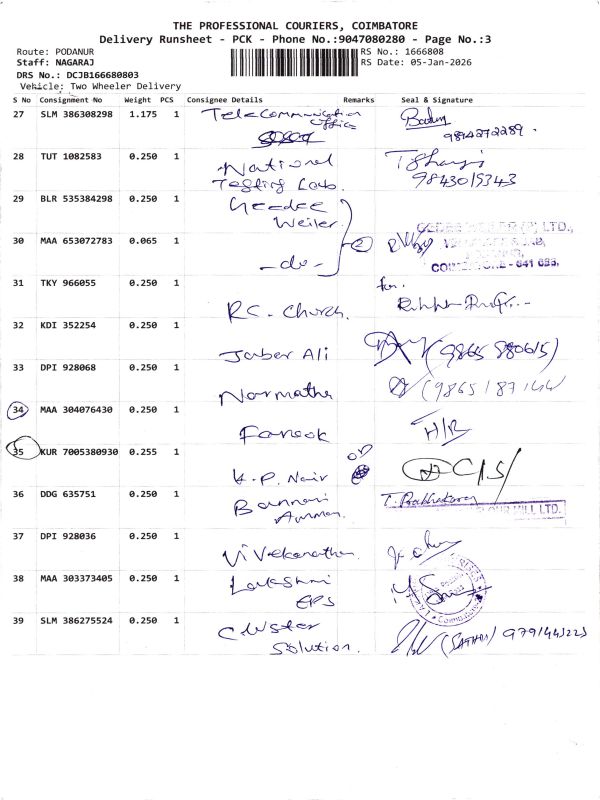 THE PROFESSIONAL COURIERS, COIMBATORE
Delivery Runsheet - PCK - Phone No.:9047080280 - Page No.:3
Route: PODANUR
Staff: NAGARAJ
DRS No.: DCJB166680803
Vehicle: Two Wheeler Delivery
RS No.: 1666808
RS Date: 05-Jan-2026
S No Consignment No Weight PCS Consignee Details Remarks Seal & Signature
27 SLM 386308298 1.175 1 Telecommunication
office
9814272289.
28 TUT 1082583 0.250 1 National
Testing Lab.
9843019343
29 BLR 535384298 0.250 1 Geedee
Weiler
30 MAA 653072783 0.065 1 -do- 2
LTD.,
COIMBATORE - 641 023.
31 TKY 966055 0.250 1 for.
R.C. Church.
32 KDI 352254 0.250 1
Jaber Ali (9865 880615)
33 DPI 928068 0.250 1
Narmatha (9865187144)
34 MAA 304076430 0.250 1
Farook H/R
35 KUR 7005380930 0.255 1
K.P. Nair
36 DDG 635751 0.250 1 T. Prabhakaran
Bannari
Amman.
MILL LTD.
37 DPI 928036 0.250 1
Vivekanatha
38 MAA 303373405 0.250 1 Lakshmi
EPS
39 SLM 386275524 0.250 1 Cluster
Solution. (SATHISH) 9791443223